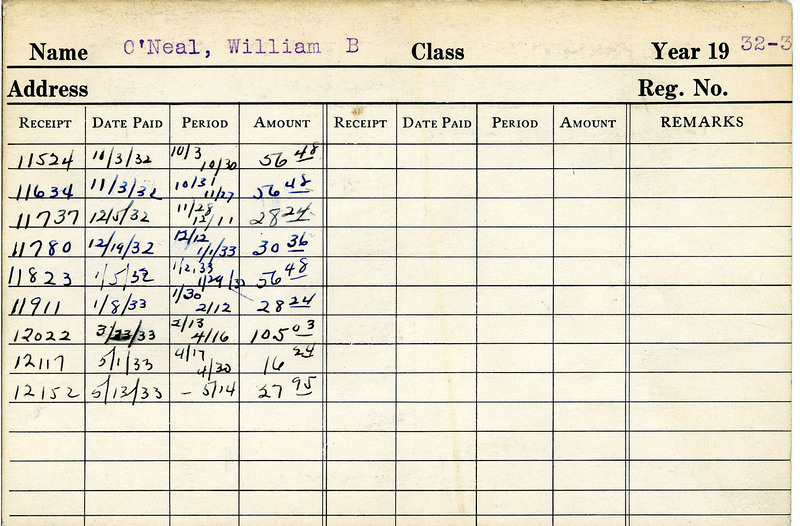 Name O'Neal, William B Class Year 19 32-3
Address Reg. No.
RECEIPT DATE PAID PERIOD AMOUNT RECEIPT DATE PAID PERIOD AMOUNT REMARKS
11524 10/3/32 10/3 10/30 56 48
11634 11/3/32 10/31 11/27 56 48
11737 12/5/32 11/28 12/11 28 24
11780 12/19/32 12/12 1/1/33 30 36
11823 1/5/32 1/2/33 1/29/3 56 48
11911 1/8/33 1/30 2/12 28 24
12022 3/23/33 2/13 4/16 105 03
12117 5/1/33 4/17 4/30 16 24
12152 5/13/33 – 5/14 27 95